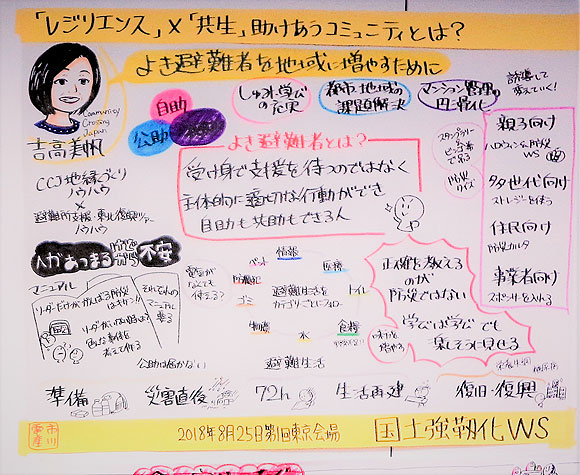 「レジリエンス」×「共生」助けあうコミュニティとは？
よき避難者を地域に増やすために
Community
Crossing
Japan
吉高美帆
自助
公助
しゅみ・学び
の充実
都市・地域の
課題解決
マンション管理の
円滑化
誘導して
変えていく！
CCJ地縁づくり
ノウハウ
×
避難所支援・東北復興ツアー
ノウハウ
よき避難者とは？
受け身で支援を待つのではなく
主体的に適切な行動ができ
自助も共助もできる人
スタンプラリー
防災
クイズ
親子向け
ハロウィン&防災
WS
多世代向け
ストレッチを使う
住民向け
防災カルタ
事業者向け
スポンサーを入れる
人があつまる
不安
マニュアル
リーダーだけががんばる防災
はキツい！！
それぞれの
マニュアル
要る
公助は届かない
電気が
なくても
使える？
ペット
情報
医療
防犯
トイレ
ゴミ
避難生活を
カテゴリごとにフォロー
物資
水
食糧
避難生活
正解を教える
のが
防災ではない
学びは学びでも
楽しそうに見せる
味方を
増やす
準備
災害直後
72h
生活再建
復旧・復興
市川
2018年8月25日第1回東京会場
国土強靭化WS